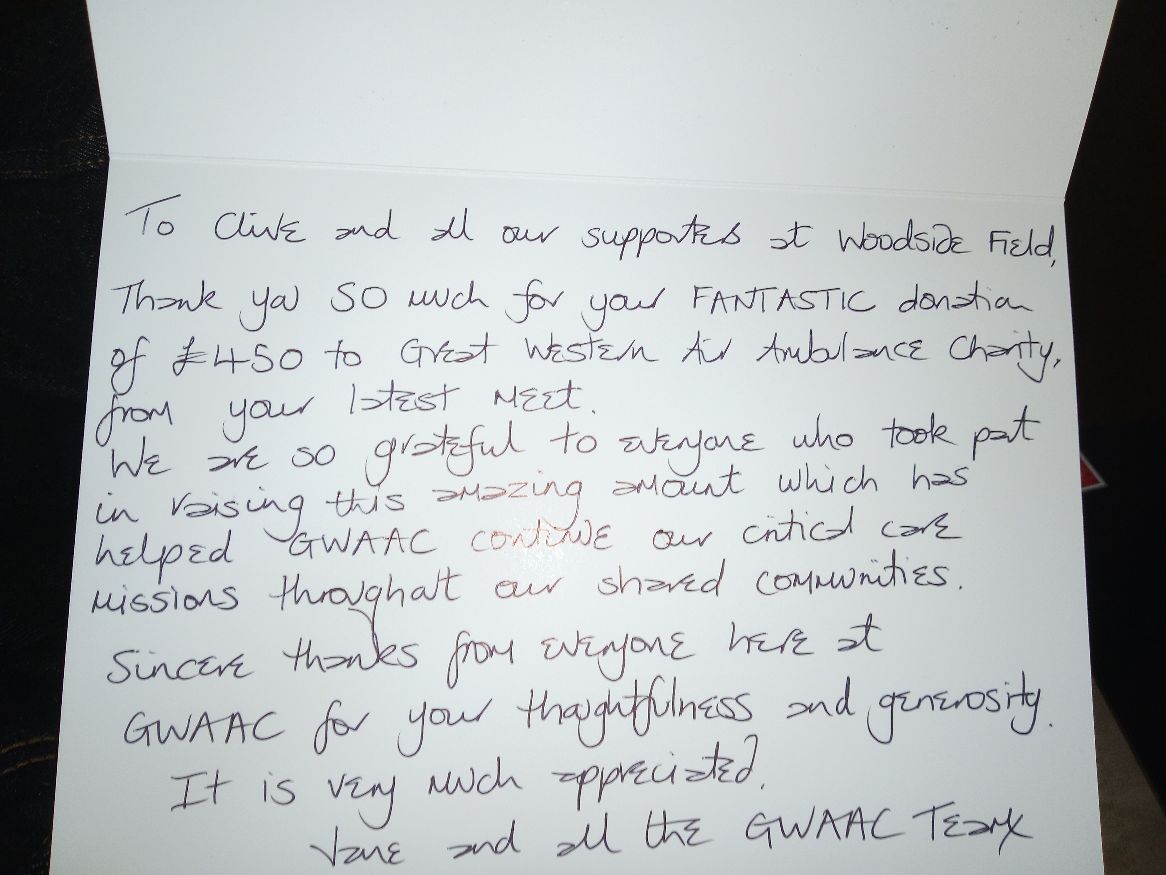 To Clive and all our supporters at Woodside Field,
Thank you SO much for your FANTASTIC donation
of £450 to Great Western Air Ambulance Charity,
from your latest meet.
We are so grateful to everyone who took part
in raising this amazing amount which has
helped GWAAC continue our critical care
missions throughout our shared communities.
Sincere thanks from everyone here at
GWAAC for your thoughtfulness and generosity.
It is very much appreciated.
Jane and all the GWAAC Team x